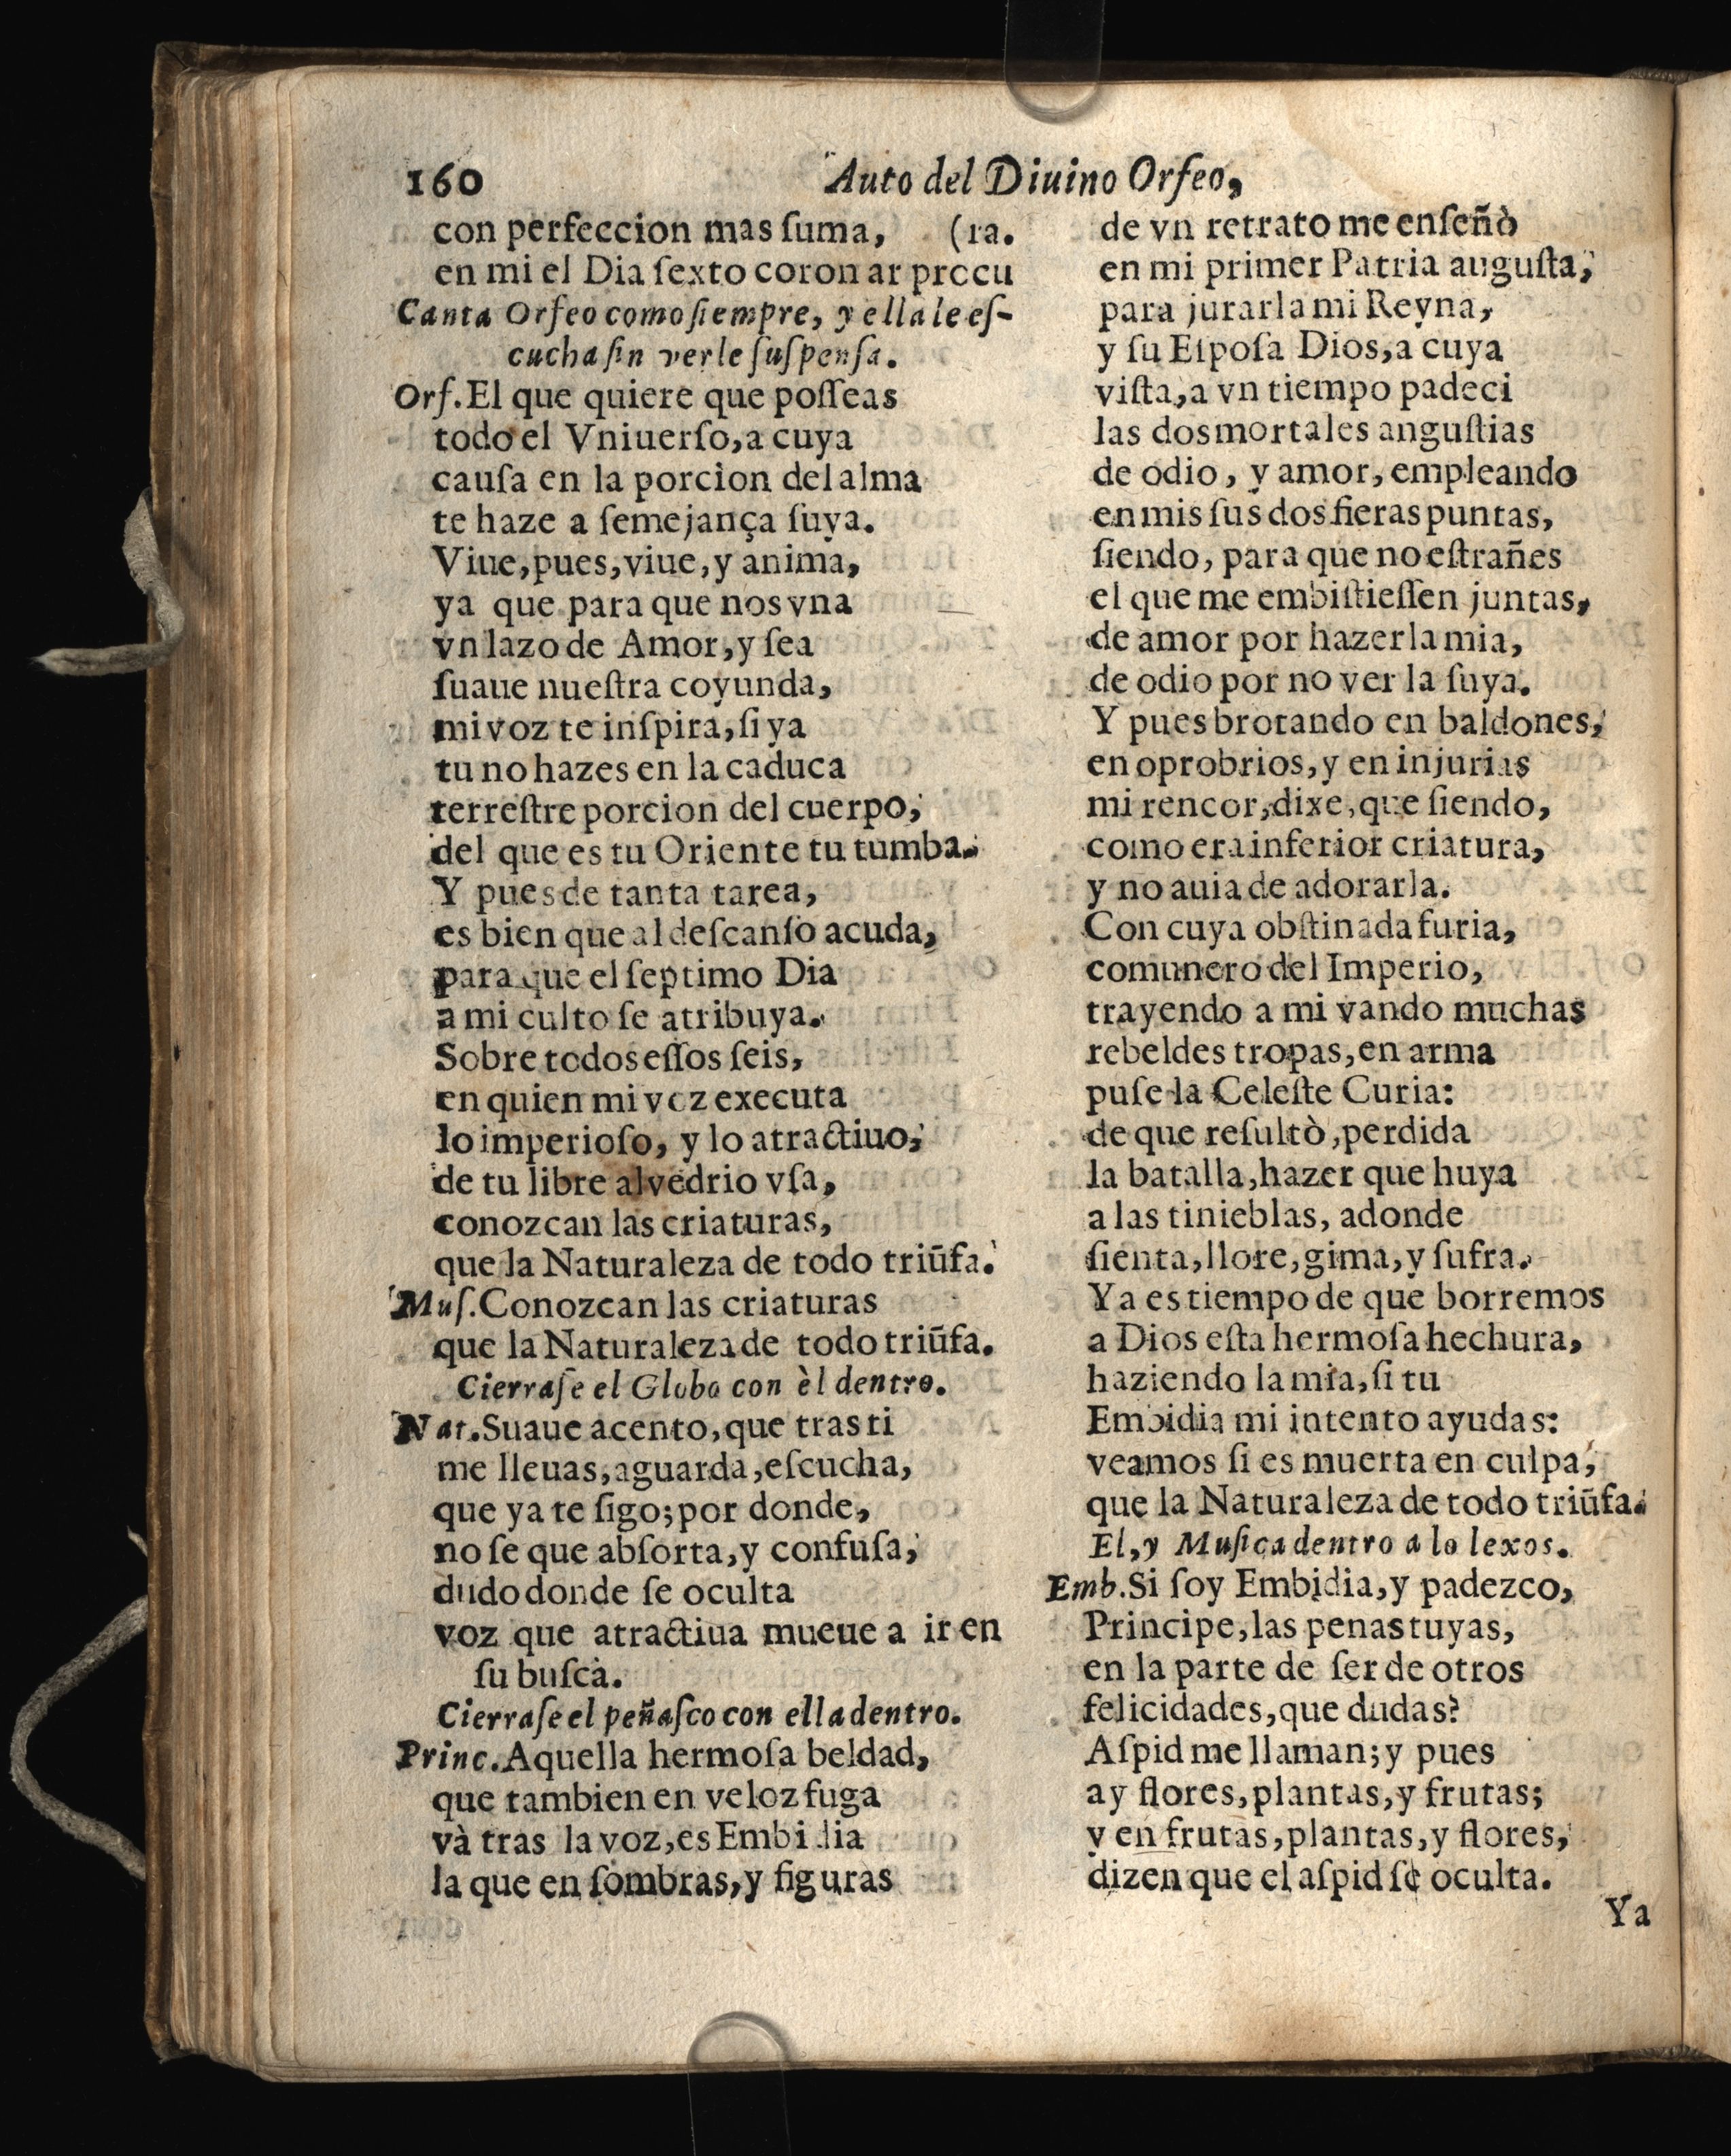 160 Auto del Diuino Orfeo,
con perfeccion mas ſuma, (ra.
en mi el Dia ſexto coronar procu
Canta Orfeo como ſiempre, y ella le eſ-
cucha ſin verle ſuſpenſa.
Orf. El que quiere que poſſeas
todo el Vniuerſo, a cuya
cauſa en la porcion del alma
te haze a ſemejança ſuya.
Viue, pues, viue, y anima,
ya que para que nos vna
vn lazo de Amor, y ſea
ſuaue nueſtra coyunda,
mi voz te inſpira, ſi ya
tu no hazes en la caduca
terreſtre porcion del cuerpo,
del que es tu Oriente tu tumba.
Y pues de tanta tarea,
es bien que al deſcanſo acuda,
para que el ſeptimo Dia
a mi culto ſe atribuya.
Sobre todos eſſos ſeis,
en quien mi voz executa
lo imperioſo, y lo atractiuo,
de tu libre alvedrio vſa,
conozcan las criaturas,
que la Naturaleza de todo triūfa.
Muſ. Conozcan las criaturas
que la Naturaleza de todo triūfa.
Cierraſe el Globo con èl dentro.
Nat. Suaue acento, que tras ti
me lleuas, aguarda, eſcucha,
que ya te ſigo; por donde,
no ſe que abſorta, y confuſa,
dudo donde ſe oculta
voz que atractiua mueue a ir en
ſu buſca.
Cierraſe el peñaſco con ella dentro.
Princ. Aquella hermoſa beldad,
que tambien en veloz fuga
và tras la voz, es Embidia
la que en ſombras, y figuras
de vn retrato me enſeñò
en mi primer Patria auguſta,
para jurarla mi Reyna,
y ſu Eſpoſa Dios, a cuya
viſta, a vn tiempo padeci
las dos mortales anguſtias
de odio, y amor, empleando
en mis ſus dos fieras puntas,
ſiendo, para que no eſtrañes
el que me embiſtieſſen juntas,
de amor por hazerla mia,
de odio por no ver la ſuya.
Y pues brotando en baldones,
en oprobrios, y en injurias
mi rencor, dixe, que ſiendo,
como era inferior criatura,
y no auia de adorarla.
Con cuya obſtinada furia,
comunero del Imperio,
trayendo a mi vando muchas
rebeldes tropas, en arma
puſe la Celeſte Curia:
de que reſultò, perdida
la batalla, hazer que huya
a las tinieblas, adonde
ſienta, llore, gima, y ſufra.
Ya es tiempo de que borremos
a Dios eſta hermoſa hechura,
haziendo la mia, ſi tu
Embidia mi intento ayudas:
veamos ſi es muerta en culpa,
que la Naturaleza de todo triūfa.
El, y Muſica dentro a lo lexos.
Emb. Si ſoy Embidia, y padezco,
Principe, las penas tuyas,
en la parte de ſer de otros
felicidades, que dudas?
Aſpid me llaman; y pues
ay flores, plantas, y frutas;
y en frutas, plantas, y flores,
dizen que el aſpid ſe oculta.
Ya